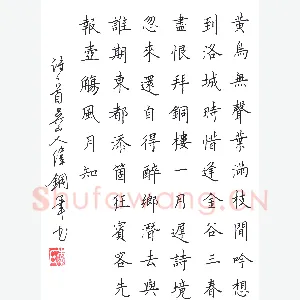 黃鳥無聲葉滿枝閒吟想
到洛城時惜逢金谷三春
盡恨拜銅樓一月遲詩境
忽來還自得醉鄉潛去與
誰期東都添箇狂賓客先
報壺觴風月知
Shufawang.CN